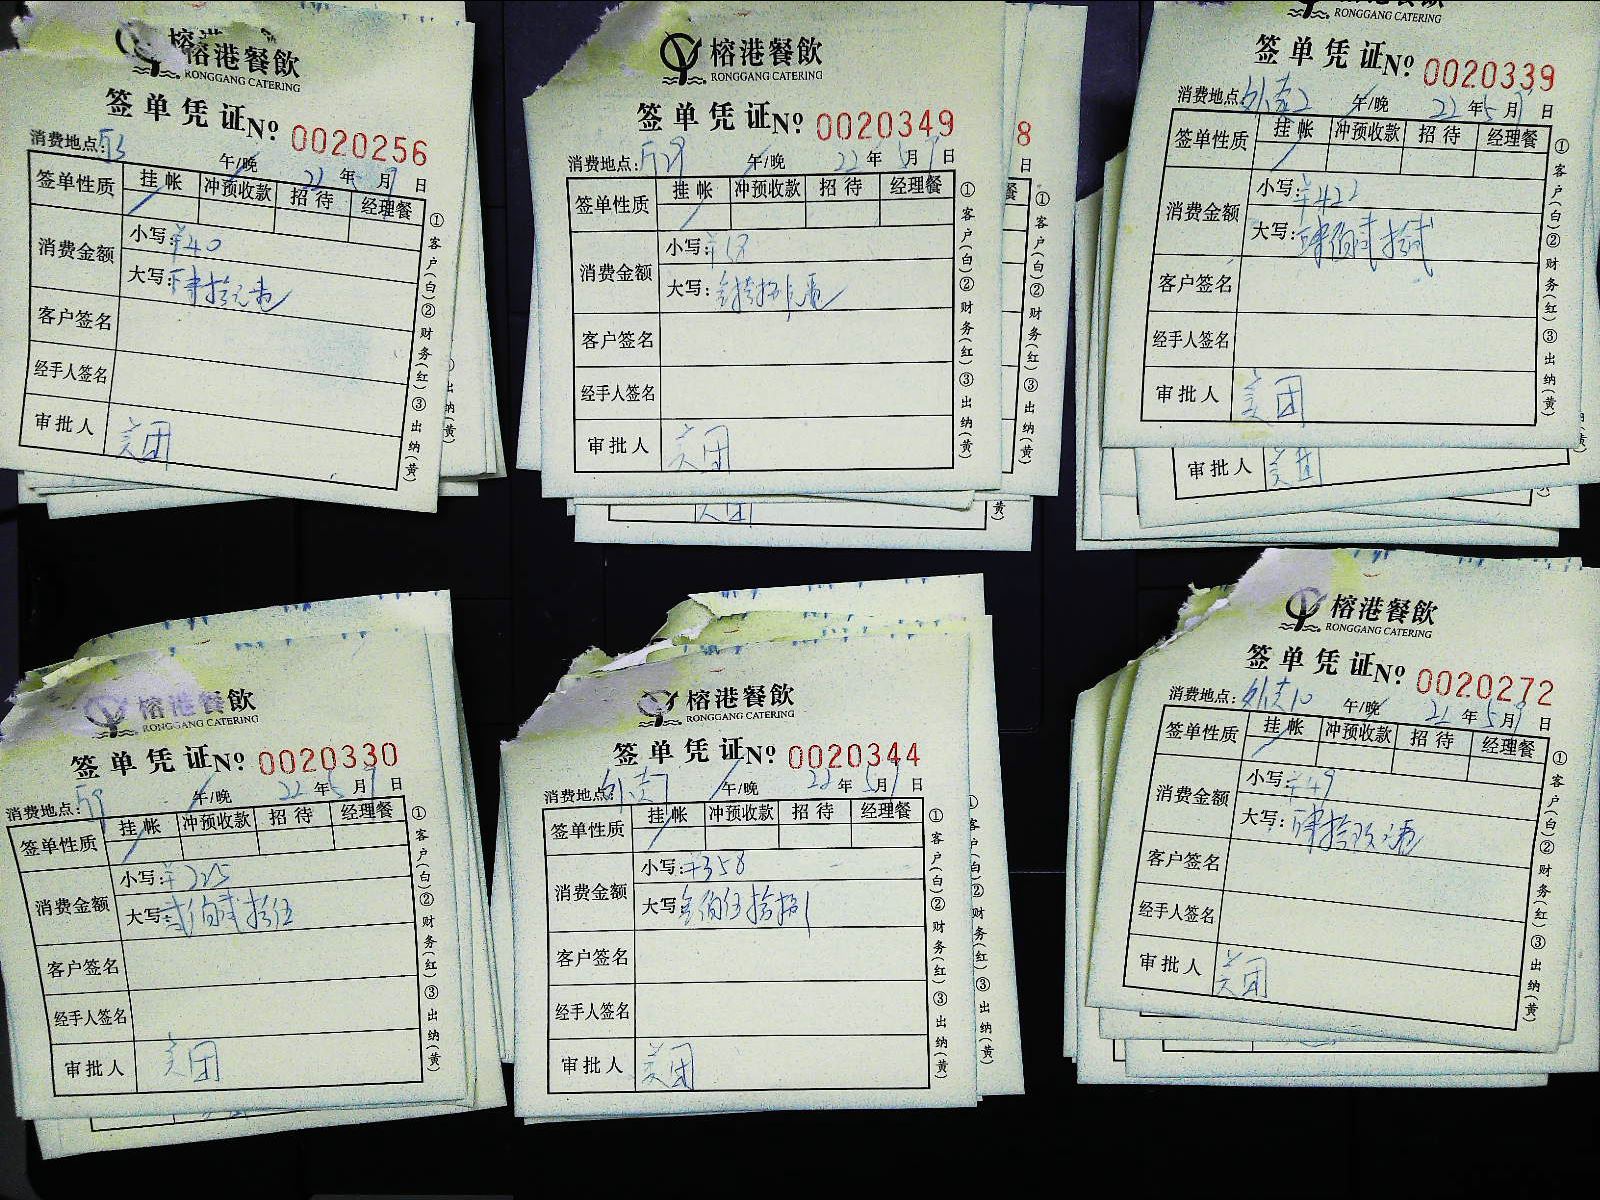 榕港餐飲
RONGGANG CATERING
签单凭证 No 0020256
消费地点:
午/晚 22年 月 日
签单性质 挂帐 冲预收款 招待 经理餐
消费金额 小写:¥40
大写:肆拾元
客户签名
经手人签名
审批人 美团
①客户(白)②财务(红)③出纳(黄)
榕港餐飲
RONGGANG CATERING
签单凭证 No 0020349
8
消费地点:
午/晚 22年5月 日
日
签单性质 挂帐 冲预收款 招待 经理餐
消费金额 小写:
大写:
客户签名
经手人签名
审批人 美团
①客户(白)②财务(红)③出纳(黄)
①客户(白)②财务(红)③出纳(黄)
美团
RONGGANG CATERING
签单凭证 No 0020339
消费地点:外卖2
午/晚 22年5月 日
签单性质 挂帐 冲预收款 招待 经理餐
消费金额 小写:¥422
大写:肆佰贰拾贰
客户签名
经手人签名
审批人 美团
①客户(白)②财务(红)③出纳(黄)
审批人 美团
榕港餐飲
RONGGANG CATERING
签单凭证 No 0020330
消费地点:
午/晚 22年5月 日
签单性质 挂帐 冲预收款 招待 经理餐
消费金额 小写:¥225
大写:贰佰贰拾伍
客户签名
经手人签名
审批人 美团
①客户(白)②财务(红)③出纳(黄)
榕港餐飲
RONGGANG CATERING
签单凭证 No 0020344
消费地点:外卖7
午/晚 22年5月 日
签单性质 挂帐 冲预收款 招待 经理餐
消费金额 小写:¥358
大写:叁佰伍拾捌
客户签名
经手人签名
审批人 美团
①客户(白)②财务(红)③出纳(黄)
①客户(白)②财务(红)③出纳(黄)
榕港餐飲
RONGGANG CATERING
签单凭证 No 0020272
消费地点:外卖10
午/晚 22年5月 日
签单性质 挂帐 冲预收款 招待 经理餐
消费金额 小写:¥49
大写:肆拾玖元
客户签名
经手人签名
审批人 美团
①客户(白)②财务(红)③出纳(黄)